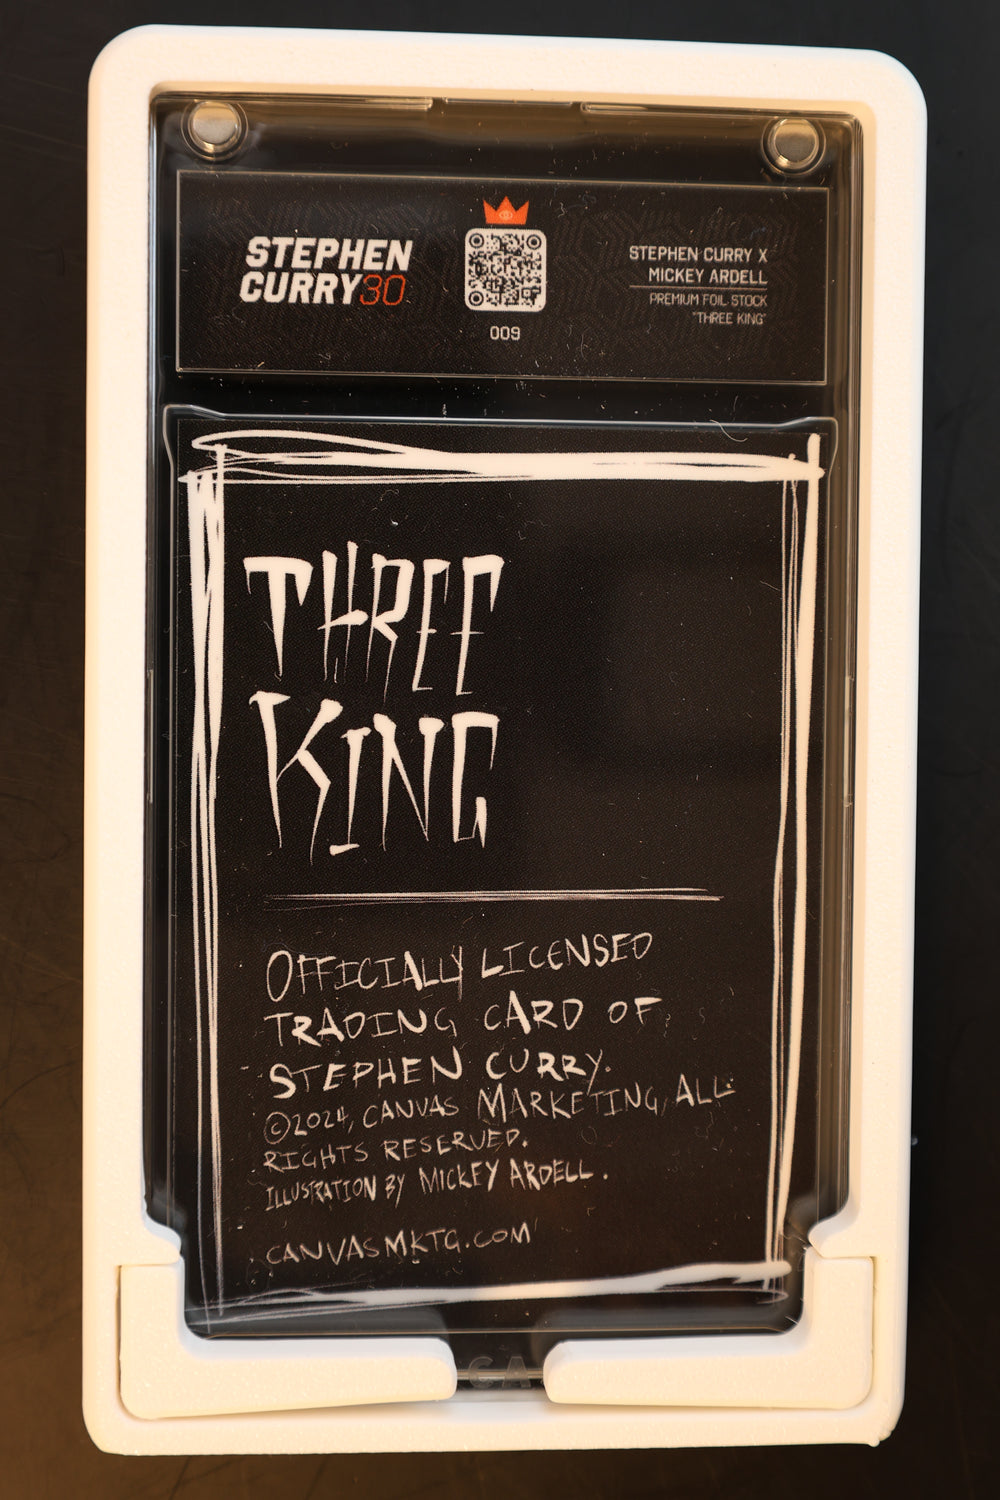 STEPHEN
CURRY30
009
STEPHEN CURRY X
MICKEY ARDELL
PREMIUM FOIL STOCK
"THREE KING"
THREE
KING
OFFICIALLY LICENSED
TRADING CARD OF
STEPHEN CURRY.
©2024, CANVAS MARKETING, ALL
RIGHTS RESERVED.
ILLUSTRATION BY MICKEY ARDELL.
CANVASMKTG.COM